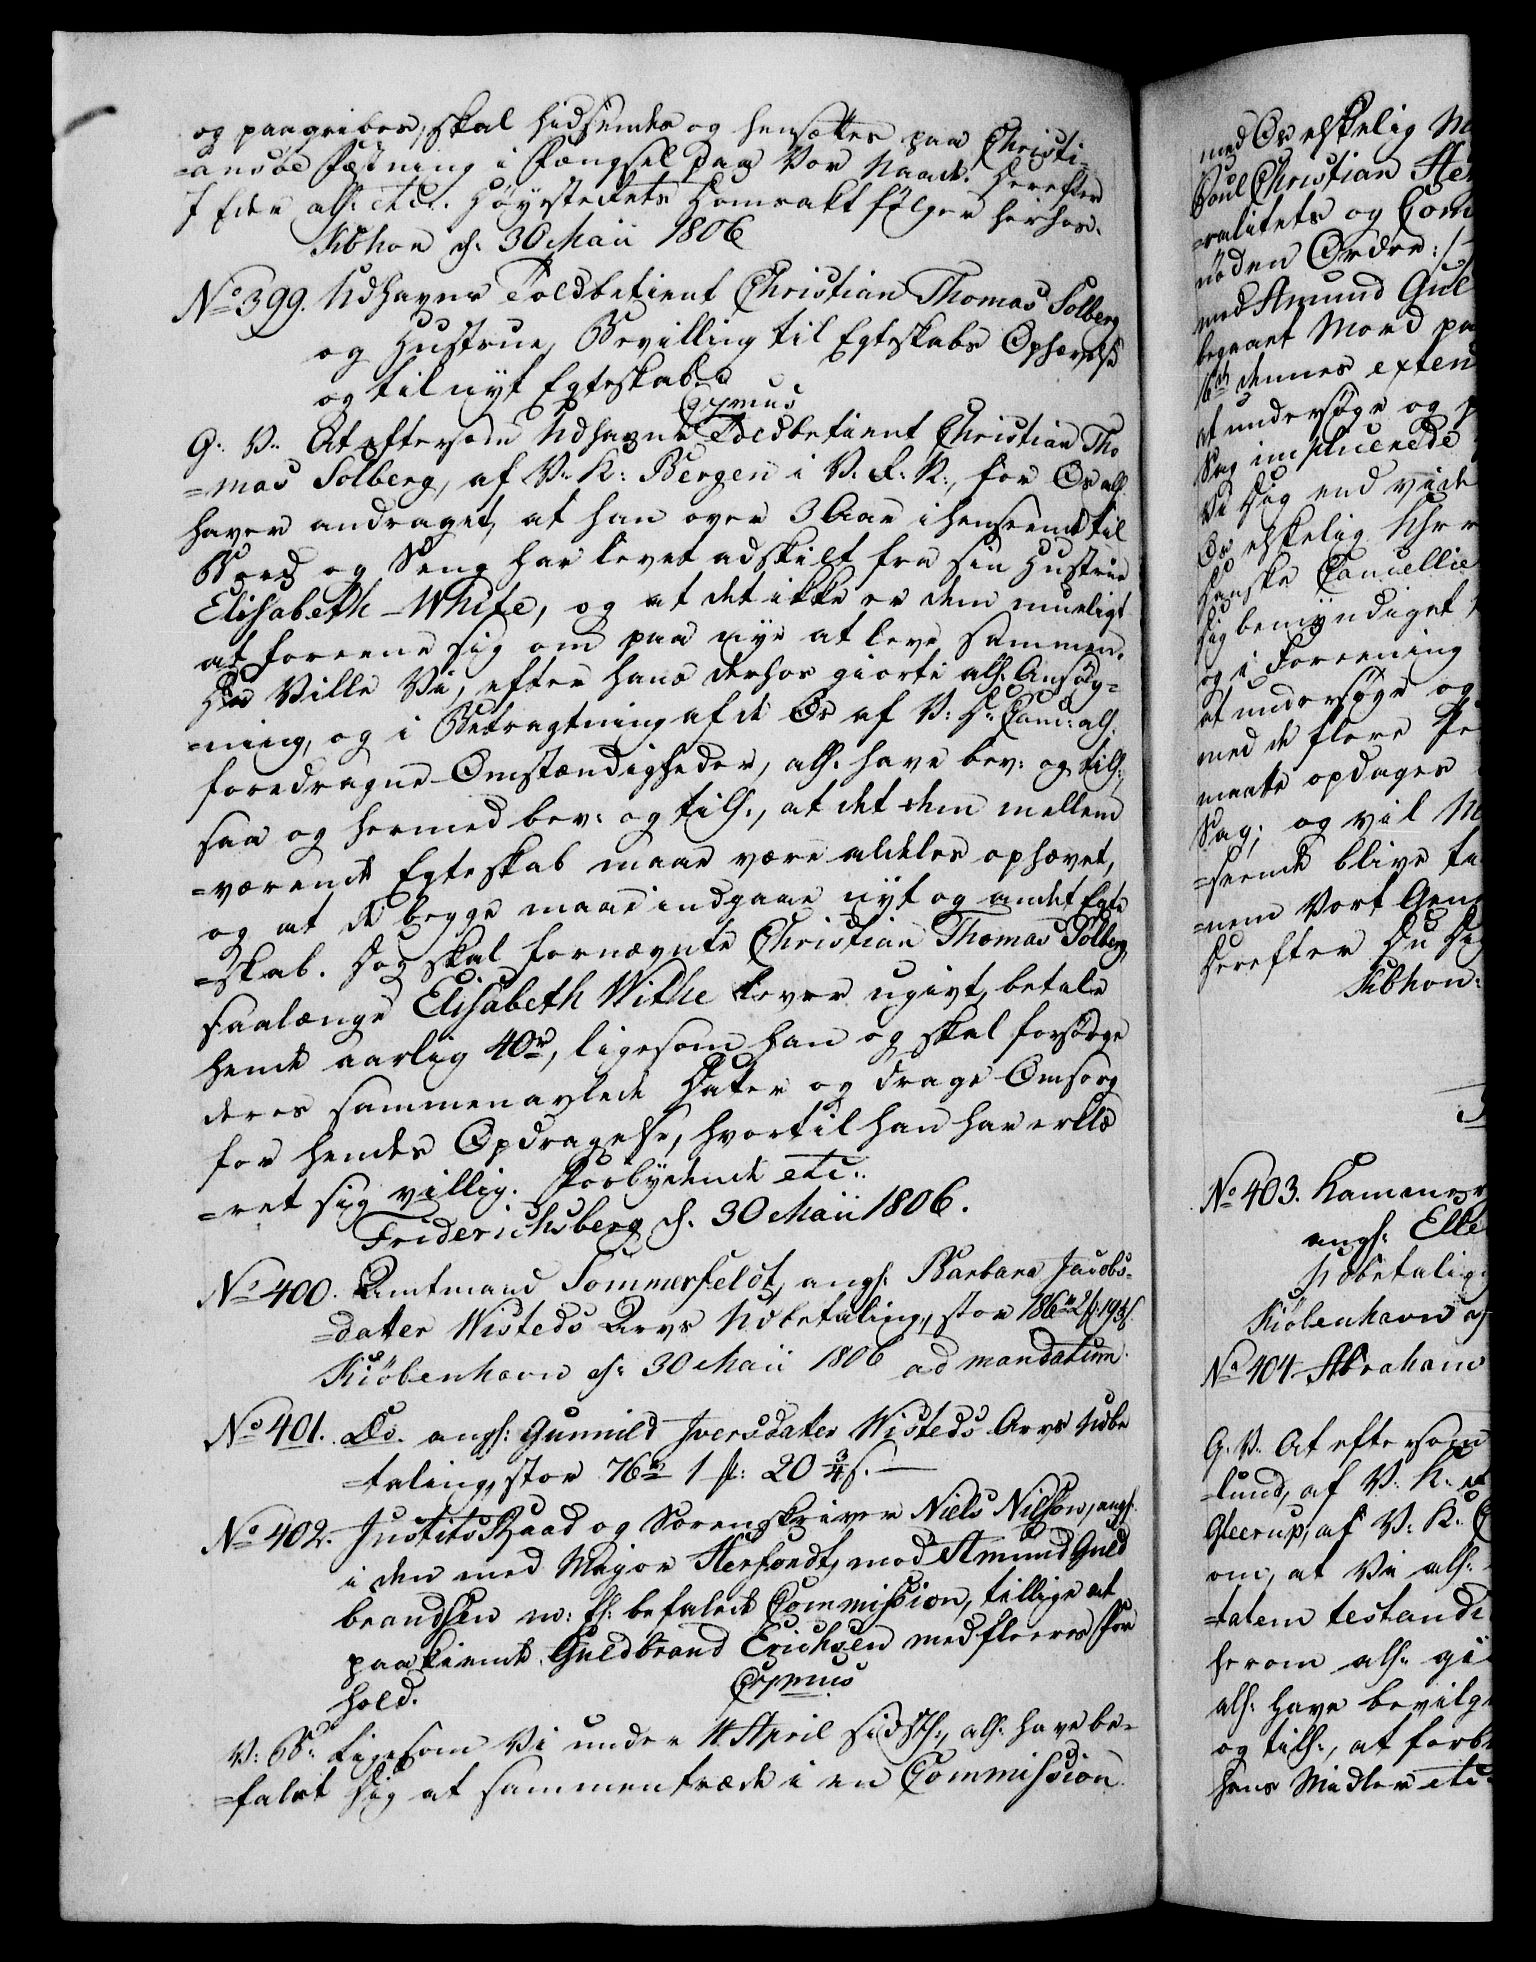 og paagribes, skal hidsendes og hensættes paa Christi-
=ansøe Fæstning i Fængsel paa Vor Naade. Derefter
I Eder alh: etc:. Høyesterets Domsakt følger herhos.
Kbhvn d. 30 Maii 1806
No 399. Udhavns Toldbetient Christian Thomas Solberg
og Hustrue, Bevilling til Egteskabs Ophævelse
og til nyt Egteskab.
Copmus
G: V:. At eftersom Udhavns Toldbetient Christian Tho
=mas Solberg, af V: K: Bergen i V. R. N., for Os alh:
haver andraget, at han over 3 Aar i henseende til
Bord og Seng har levet adskilt fra sin Hustrue
Elisabeth White, og at det ikke er dem mueligt
at foreene sig om paa nye at leve sammen.
Da Ville Vi, efter hans derhos giorte alh: Ansøg-
=ning, og i Betragtning af de Os af V: D: Canc: alh:
foredragne Omstændigheder, alh: have bev: og tilh:,
saa og hermed bev: og tilh:, at det dem mellem
=værende Egteskab maae være aldeles ophævet,
og at de begge maae indgaae nyt og andet Egte
=skab. Dog skal fornævnte Christian Thomas Solberg,
saalænge Elisabeth Withe lever ugivt, betale
hende aarlig 40 rd, ligesom han og skal forsørge
deres sammenavlede Datter og drage Omsorg
for hendes Opdragelse, hvortil han har erklæ
=ret sig villig. Forbydende etc:.
Friderichsberg d. 30 Maii 1806.
No 400. Amtmand Sommerfeldt, angh: Barbara Jacobs-
=datter Wisteds Arvs Udbetaling, stor 186 rd 2 ¾ 19 ¾ s.
Kiøbenhavn d: 30 Maii 1806 ad mandatum.
No 401. Do. angh: Gunnild Iversdatter Wisteds Arvs Udbe
=taling, stor 76 rd 1 ¾: 20 ¾ s.
No 402. JustitsRaad og Sorenskriver Niels Nilson, angh:
i den med Major Hersondt, mod Amund Guld
brandsen m: fl: befalede Commission, tillige at
paakiende Guldbrand Erichsen med fleeres For
hold.
Copmus
V: G: Ligesom Vi under 11 April sidsth:, alh: have be-
=falet Dig at sammentræde i en Commission

med Os elskelig M
Poul Christian
=ralitets og Com
nøden Ordre:
mod Amund Gul
begaaet Mord pa
16de dennes exten
at undersøge og
Sag
Vi Dig end vide
Os elskelig Uhr
Danske Cancellie
Dig bemyndiget
og i Foreening
at undersøge og
med de flere Pe
maate opdages
Sag; og vil
=seende blive
=nem Vort Gen
Derefter Du Dig
Kbhvn:
No 403. Kammer
angh: Elle
Udbetaling
Kiøbenhavn
No 404 Abraham
G: V. At eftersom
=lund, af V. K.
Gleerup, af V: K:
om, at Vi alh:
=tatem testandi
herom alh: gi
alh: have bevilg
og tilh:, at forbe
hans Midler etc